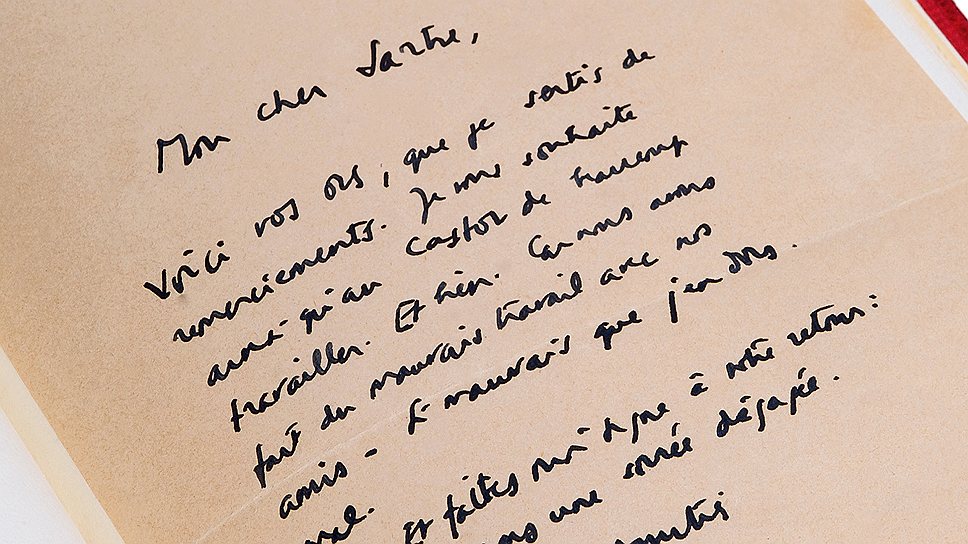 Mon cher Sartre,
Voici vos ors, que je sertis de
remerciements. Je vous souhaite
ainsi qu'au Castor de beaucoup
travailler. Et bien. Car nous avons
fait du mauvais travail avec nos
amis - Si mauvais que j'en dors
mal.
Et faites moi signe à votre retour :
une soirée dégagée.